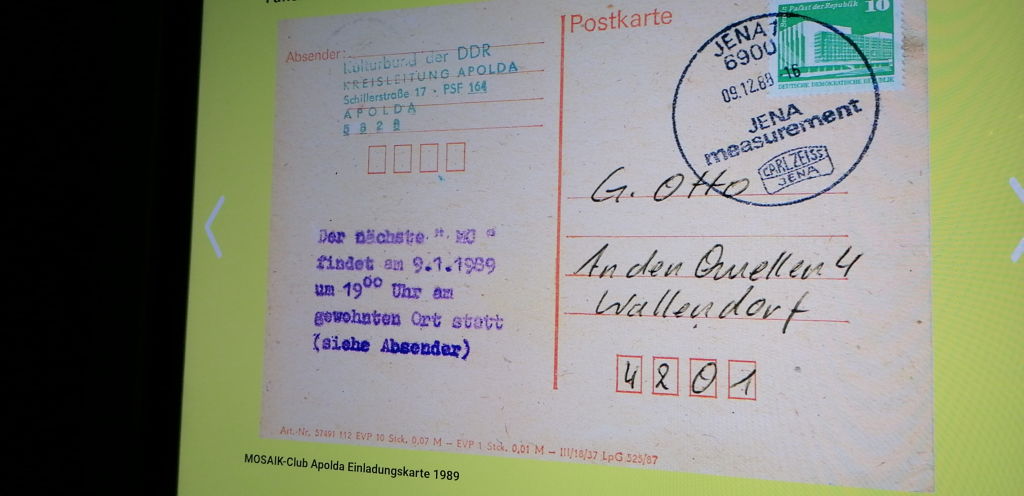 Postkarte
Absender:
Kulturbund der DDR
KREISLEITUNG APOLDA
Schillerstraße 17 · PSF 164
APOLDA
5 3 2 8
Palast der Republik 10
DEUTSCHE DEMOKRATISCHE REPUBLIK
JENA 1
6900
09.12.88 - 16
JENA
measurement
CARL ZEISS
JENA
G. Otto
An den Quellen 4
Wallendorf
4 2 0 1
Der nächste " MC "
findet am 9.1.1989
um 19⁰⁰ Uhr am
gewohnten Ort statt
(siehe Absender)
Art.-Nr. 57491 112 EVP 10 Stck. 0,07 M — EVP 1 Stck. 0,01 M — III/18/37 LpG 525/87
MOSAIK-Club Apolda Einladungskarte 1989